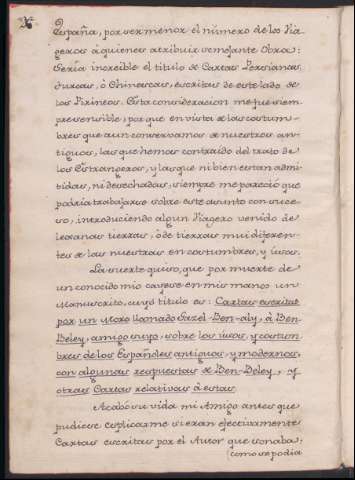 España, por ser menor el número de los Via-
geros à quienes atribuir semejante Obra:
Seria increible el titulo de Cartas Persianas,
Turcas, ò Chinescas, escritas de este lado de
los Pirineos. Esta consideracion me fue siem-
pre sensible; por que en vista de las costum-
bres que aun conservamos de nuestros an-
tiguos, las que hemos contraido del trato de
los Estrangeros, y las que ni bien estan admi-
tidas, ni desechadas, siempre me pareciò que
podria trabajarse sobre este asunto con suce-
so, introduciendo algun Viagero venido de
lexanas tierras, ò de tierras mui diferen-
tes de las nuestras en costumbres, y úsos.
La suerte quiso, que por muerte de
un conocido mio cayese en mis manos un
Manuscrito, cuyo titulo es: Cartas escritas
por un Moro llamado Gazel-Ben-aly, à Ben
Beley, amigo suyo, sobre los úsos, y costum-
bres de los Españoles antiguos, y modernos,
con algunas respuestas de Ben-Beley, y
otras Cartas relativas à estas.
Acabó su vida mi Amigo antes que
pudiese esplicarme si eran efectivamente
Cartas escritas por el Autor que sonaba,
(como se podia